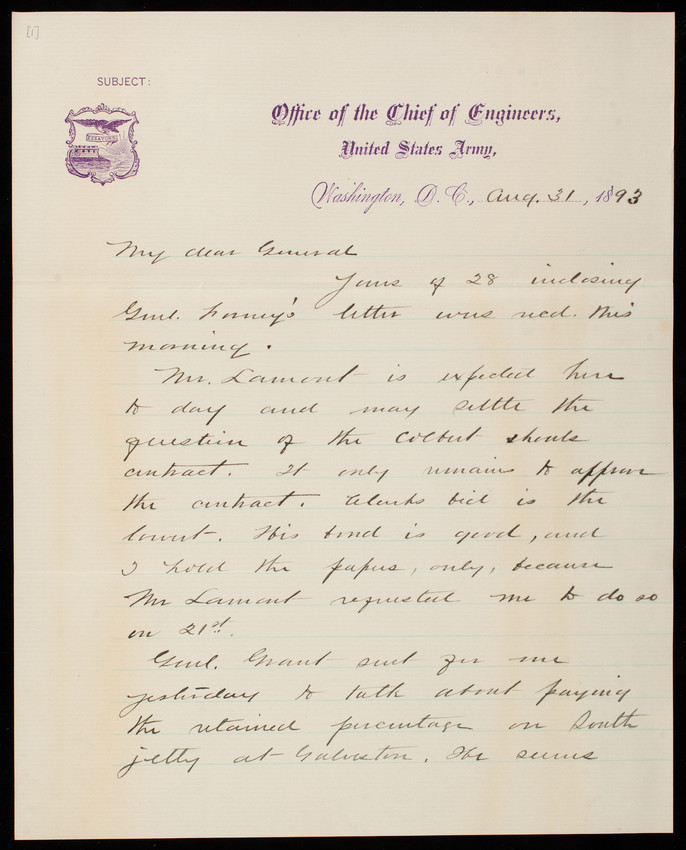 [1]
SUBJECT:
ESSAYONS
Office of the Chief of Engineers,
United States Army,
Washington, D. C., Aug. 31, 1893
My dear General
Yours of 28 inclosing
Genl. Forney's letter was recd. this
morning.
Mr. Lamont is expected here
to day and may settle the
question of the Colbert shoals
contract. It only remains to approve
the contract. Clarks bid is the
lowest. His bond is good, and
I hold the papers, only, because
Mr Lamont requested me to do so
on 21st.
Genl. Grant sent for me
yesterday to talk about paying
the retained percentage on South
jetty at Galveston. He seems